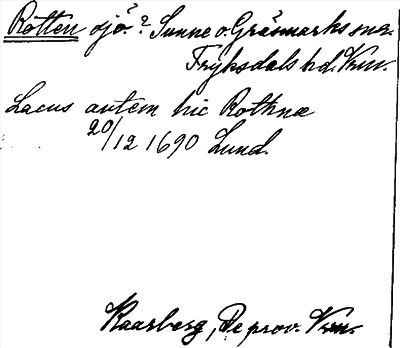 Rotten sjö? Sunne o. Gräsmarks snr.
Fryksdals hd. Vrm.
Lacus autem hic Rothnæ
20/12 1690 Lund.
Kaarberg, De prov. Vrm.